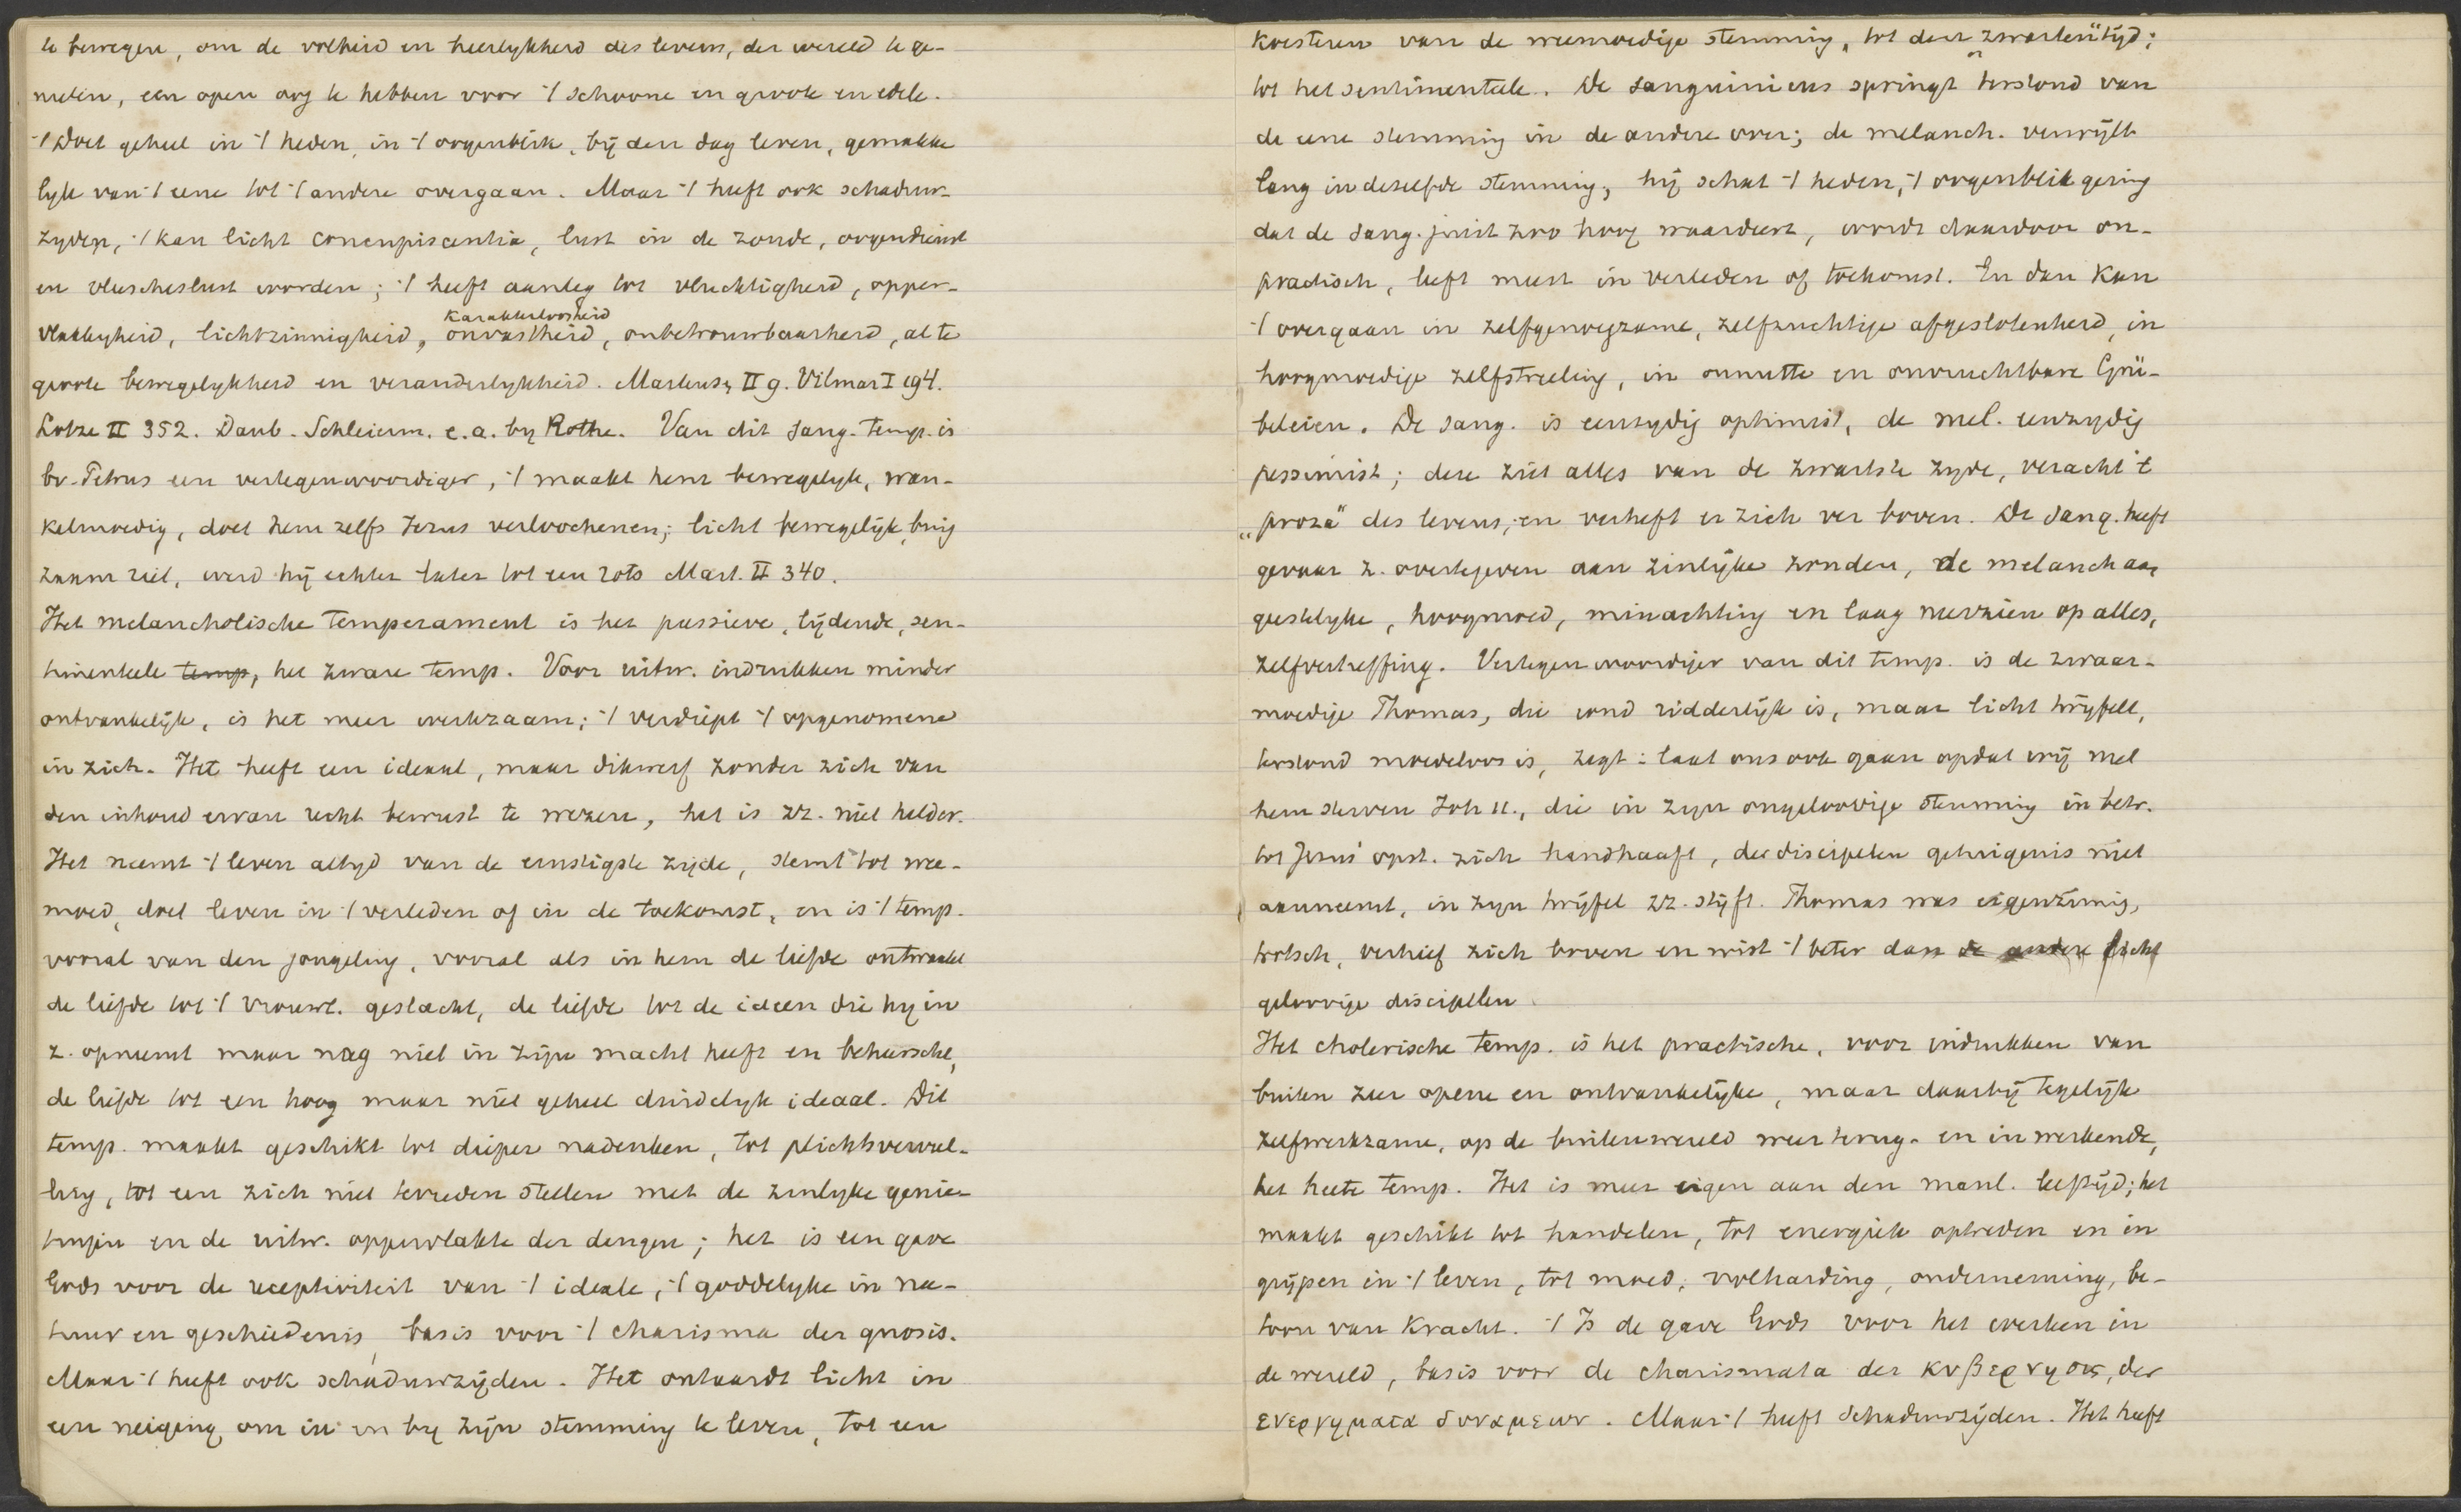 te bewegen, om de volheid en heerlykheid des levens, der wereld te ge-
nieten, een open oog te hebben voor 't schoone en groote en edele.
't Doet geheel in 't heden, in 't oogenblik, bij den dag leven, gemakke
lyk van 't eene tot 't andere overgaan. Maar 't heeft ook schaduw-
zyden, 't kan licht concupiscentia, lust in de zonde, oogendienst
en vleescheslust worden; 't heeft aanleg tot vluchtigheid, opper-
vlakkigheid, lichtzinnigheid, karakterloosheid onvastheid, onbetrouwbaarheid, al te
groote bewegelykheid en veranderlykheid. Martens, II 9. Vilmar I 194.
Lotze II 352. Daub. Schleierm. e.a. by Rothe. Van dit sang. temp. is
bv. Petrus een vertegenwoordiger, 't maakt hem bewegelyk, wan-
kelmoedig, doet hem zelfs Jezus verloochenen; licht bewegelijk, buig
zaam riet, werd hij echter later tot een rots Mart. II 340.
Het melancholische temperament is het passieve, lijdende, sen-
timenteele temp, het zware temp. Voor uitw. indrukken minder
ontvankelijk, is het meer werkzaam; 't verdiept 't opgenomene
in zich. Het heeft een ideaal, maar dikwerf zonder zich van
den inhoud ervan recht bewust te wezen, het is zz. niet helder.
Het neemt 't leven altyd van de ernstigste zijde, stemt tot wee-
moed, doet leven in 't verleden of in de toekomst, en is 't temp.
vooral van den jongeling, vooral als in hem de liefde ontwaakt
de liefde tot 't vrouwl. geslacht, de liefde tot de ideen die hy in
z. opneemt maar nog niet in zijn macht heeft en beheerscht,
de liefde tot een hoog maar niet geheel duidelyk ideaal. Dit
temp. maakt geschikt tot dieper nadenken, tot plichtsvervul-
ling, tot een zich niet tevreden stellen met de zinlyke genie-
tingen en de uitw. oppervlakte der dingen; het is een gave
Gods voor de receptiviteit van 't ideale, 't goddelyke in na-
tuur en geschiedenis, basis voor 't charisma der gnosis.
Maar 't heeft ook schaduwzijden. Het ontaardt licht in
een neiging om in en by zijn stemming te leven, tot een
koesteren van de weemoedige stemming, tot den zwaarten tijd;
tot het sentimenteele. De sanguinicus springt terstond van
de eene stemming in de andere over; de melanch. verwijlt
lang in dezelfde stemming, hij schat 't heden, 't oogenblik gering
dat de sang. juist zoo hoog waardeert, wordt daardoor on-
practisch, leeft meest in verleden of toekomst. En dan kan
't overgaan in zelfgenoegzame, zelfzuchtige afgeslotenheid, in
hoogmoedige zelfstreeling, in onnutte en onvruchtbare Grü-
beleien. De sang. is eenzydig optimist, de mel. eenzydig
pessimist; deze ziet alles van de zwartste zyde, veracht 't
„proza" des levens, en verheft er zich ver boven. De sang. heeft
gevaar z. overtegeven aan zinlijke zonden, de melanch aan
geestelyke, hoogmoed, minachting en laag neerzien op alles,
zelfverheffing. Vertegenwoordiger van dit temp. is de zwaar-
moedige Thomas, die rond ridderlijk is, maar licht twijfelt,
terstond moedeloos is, zegt: laat ons ook gaan opdat wij met
hem sterven Joh 11., die in zyn ongeloovige stemming in betr.
tot Jezus' opst. zich handhaaft, der discipelen getuigenis niet
aanneemt, in zyn twijfel zz. stijft. Thomas was eigenzinnig,
trotsch, verhief zich boven en wist 't beter dan de andere licht
geloovige discipelen.
Het cholerische temp. is het practische, voor indrukken van
buiten zeer opene en ontvankelijke, maar daarbij tegelijk
zelfwerkzame, op de buitenwereld weer terug- en in werkende,
het heete temp. Het is meer eigen aan den manl. leeftijd; het
maakt geschikt tot handelen, tot energiek optreden en in
grijpen in 't leven, tot moed, volharding, onderneming, be-
toon van kracht. 't Is de gave Gods voor het werken in
de wereld, basis voor de charismata der κυβερνησις, der
ενεργηματα δυναμεων. Maar 't heeft schaduwzijden. Het heeft